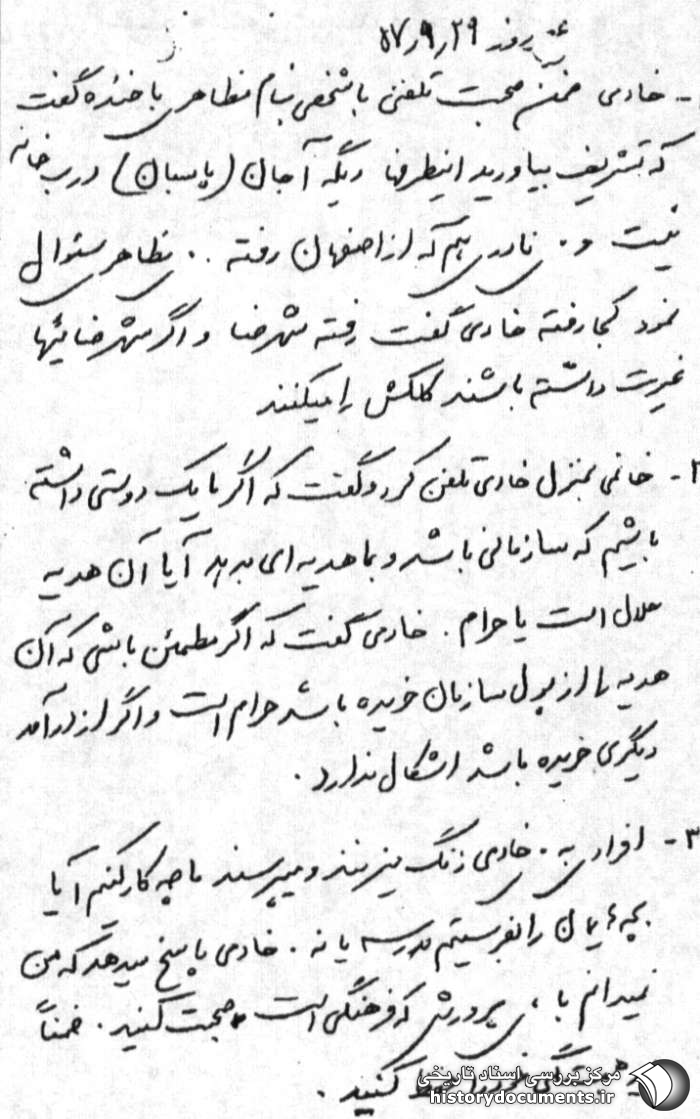 روز ۵۷٫۹٫۲۹
- خادمی ضمن صحبت تلفنی با شخصی بنام مظاهری با خنده گفت
که تشریف بیاورید اینطرفها دیگه آجان (پاسبان) درب خانه
نیست و نادری هم که از اصفهان رفته . مظاهری سئوال
نمود کجا رفته خادمی گفت رفته شهرضا و اگر شهرضائیها
غیرت داشته باشند کلکش را میکنند
۲- خانمی بمنزل خادمی تلفن کرد و گفت که اگر ما یک دوستی داشته
باشیم که سازمانی باشد و بما هدیه ای بدهد آیا آن هدیه
حلال است یا حرام . خادمی گفت که اگر مطمئن باشی که آن
هدیه را از پول سازمان خریده باشد حرام است و اگر از درآمد
دیگری خریده باشد اشکال ندارد .
۳- افرادی به خادمی زنگ میزنند و میپرسند ما چه کار کنیم آیا
بچه هایمان را بفرستیم مدرسه یا نه . خادمی پاسخ میدهد که من
نمیدانم با پرورش که فرهنگی است صحبت کنید . ضمناً
را حفظ کنید .
مرکز بررسی اسناد تاریخی
historydocuments.ir